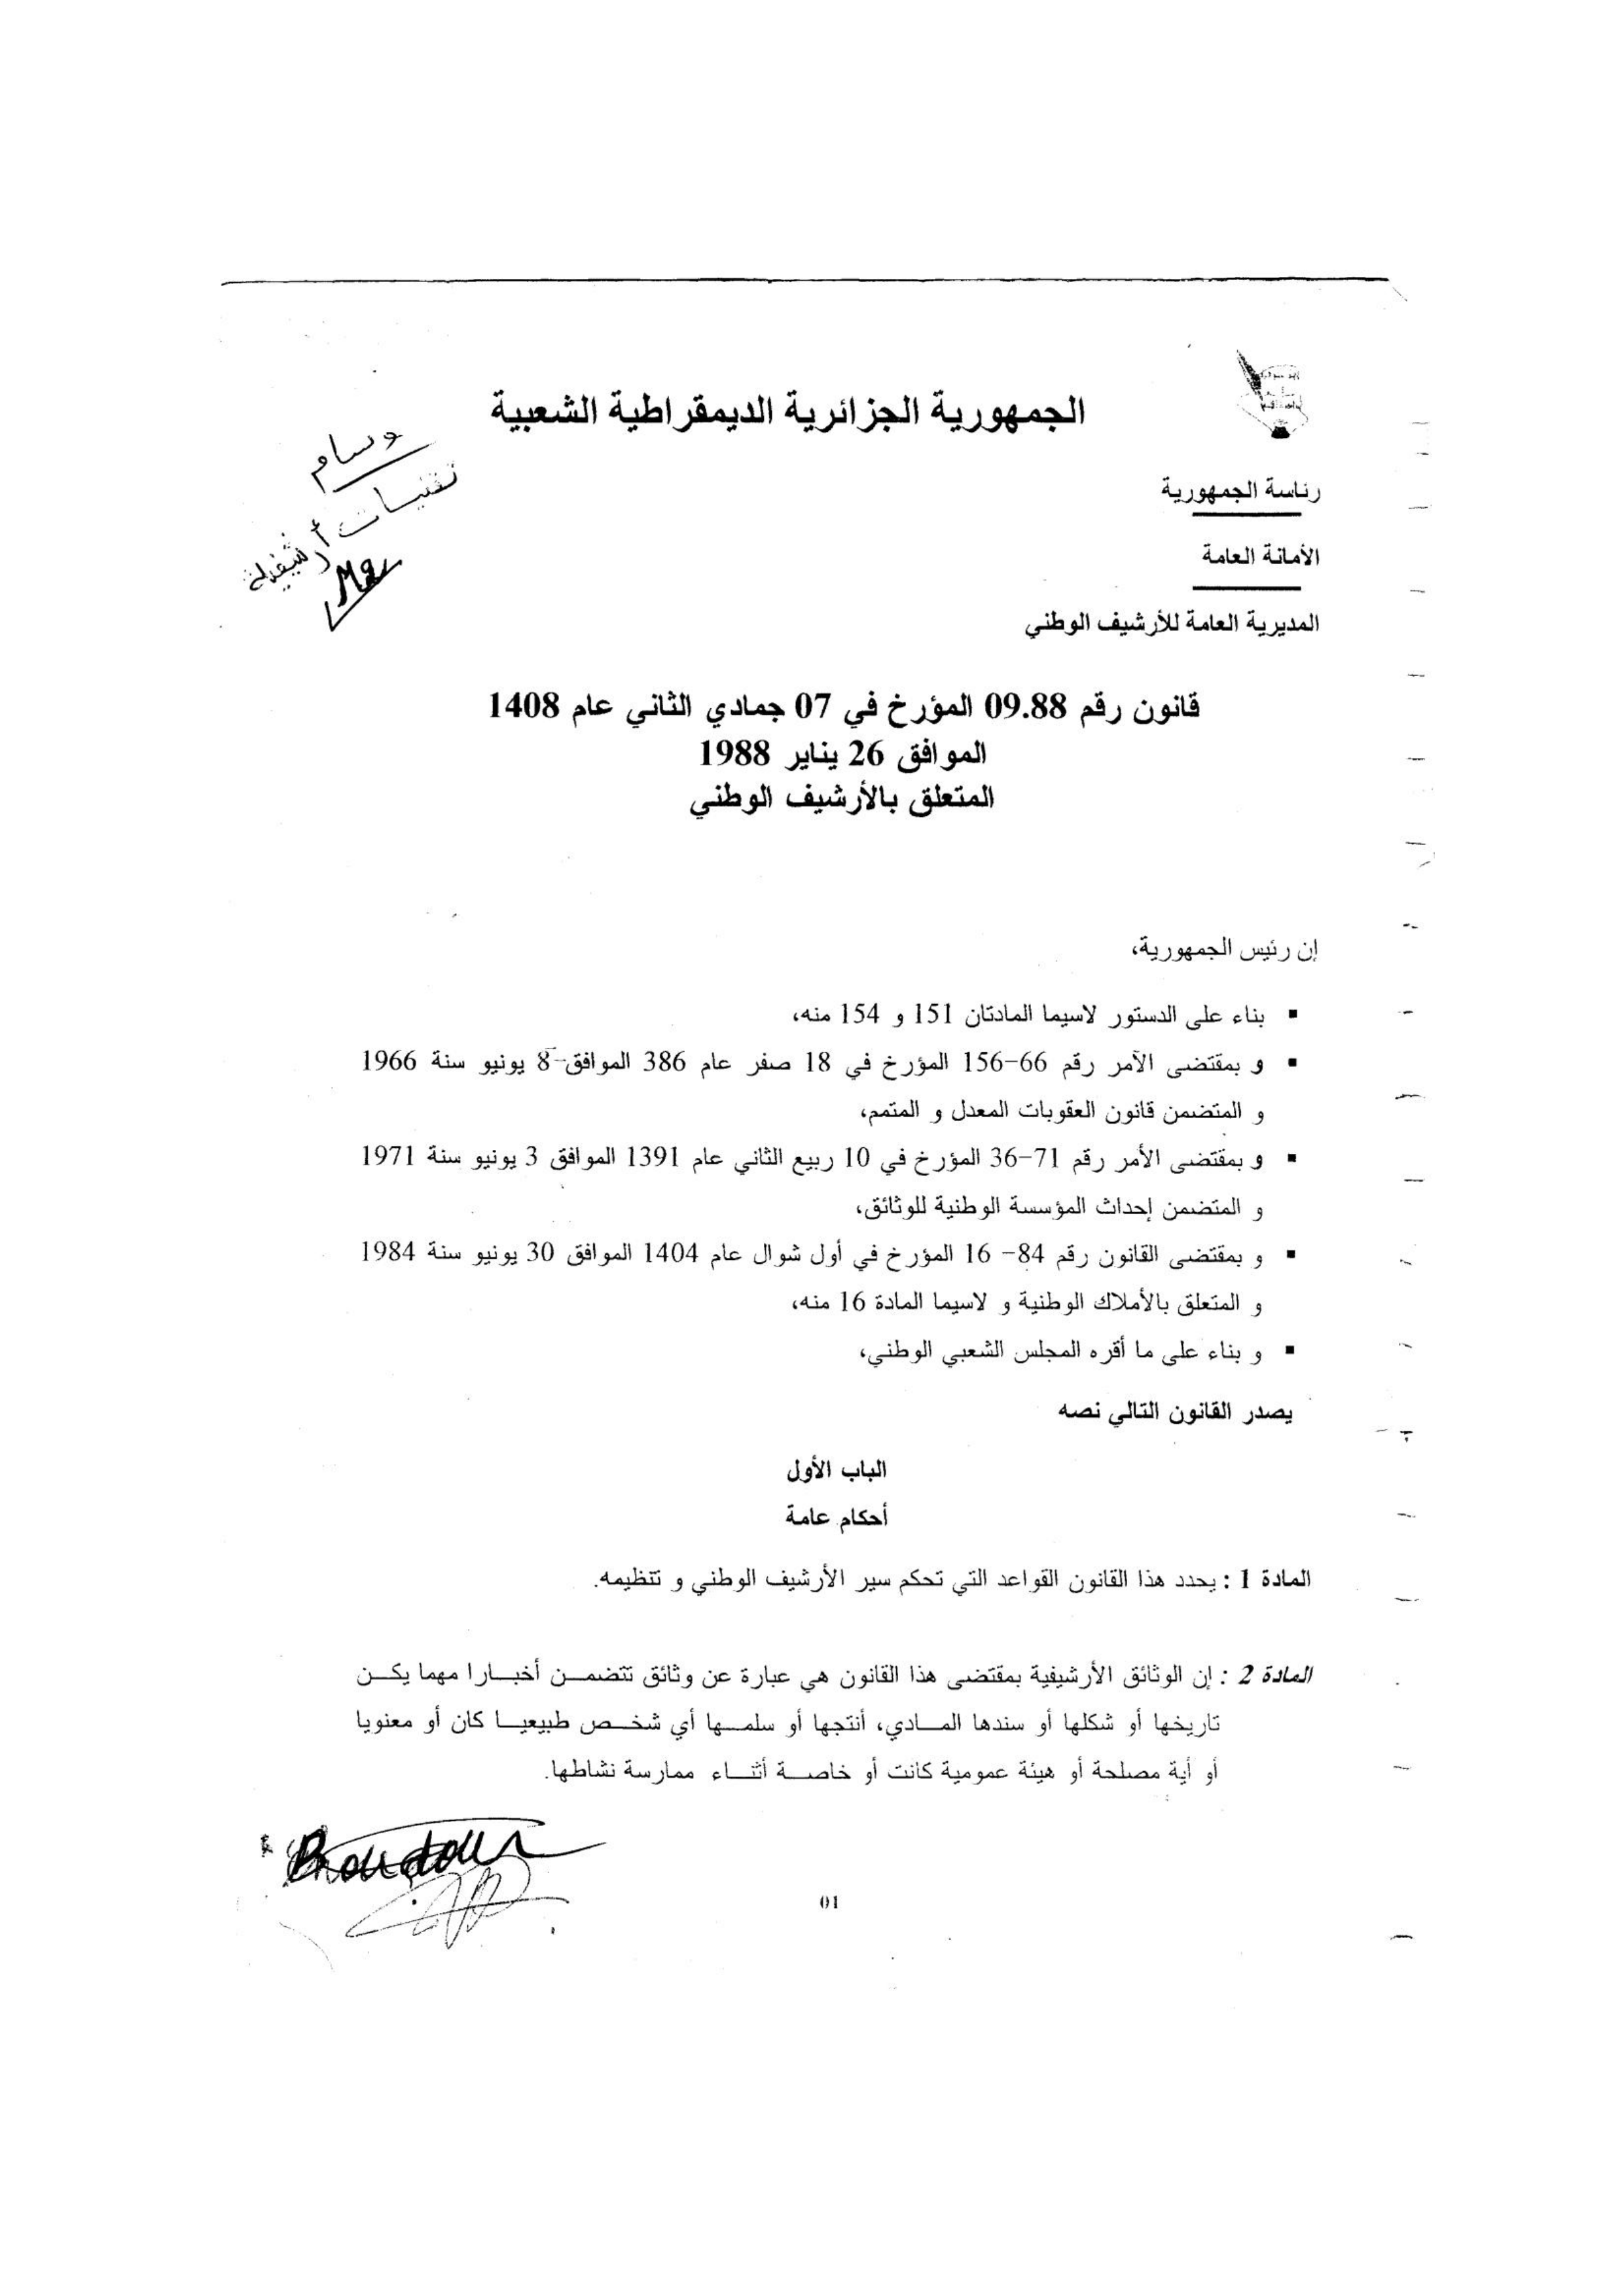 الجمهورية الجزائرية الديمقراطية الشعبية
وسام
تقنيات أرشيفية
M2
رئاسة الجمهورية
الأمانة العامة
المديرية العامة للأرشيف الوطني
قانون رقم 09.88 المؤرخ في 07 جمادي الثاني عام 1408
الموافق 26 يناير 1988
المتعلق بالأرشيف الوطني
إن رئيس الجمهورية،
▪ بناء على الدستور لاسيما المادتان 151 و 154 منه،
▪ و بمقتضى الآمر رقم 66-156 المؤرخ في 18 صفر عام 386 الموافق 8 يونيو سنة 1966
و المتضمن قانون العقوبات المعدل و المتمم،
▪ و بمقتضى الأمر رقم 71-36 المؤرخ في 10 ربيع الثاني عام 1391 الموافق 3 يونيو سنة 1971
و المتضمن إحداث المؤسسة الوطنية للوثائق،
▪ و بمقتضى القانون رقم 84- 16 المؤرخ في أول شوال عام 1404 الموافق 30 يونيو سنة 1984
و المتعلق بالأملاك الوطنية و لاسيما المادة 16 منه،
▪ و بناء على ما أقره المجلس الشعبي الوطني،
يصدر القانون التالي نصه
الباب الأول
أحكام عامة
المادة 1 : يحدد هذا القانون القواعد التي تحكم سير الأرشيف الوطني و تنظيمه.
المادة 2 : إن الوثائق الأرشيفية بمقتضى هذا القانون هي عبارة عن وثائق تتضمـــن أخبـــارا مهما يكـــن
تاريخها أو شكلها أو سندها المـــادي، أنتجها أو سلمـــها أي شخـــص طبيعيـــا كان أو معنويا
أو أية مصلحة أو هيئة عمومية كانت أو خاصـــة أثنـــاء ممارسة نشاطها.
01